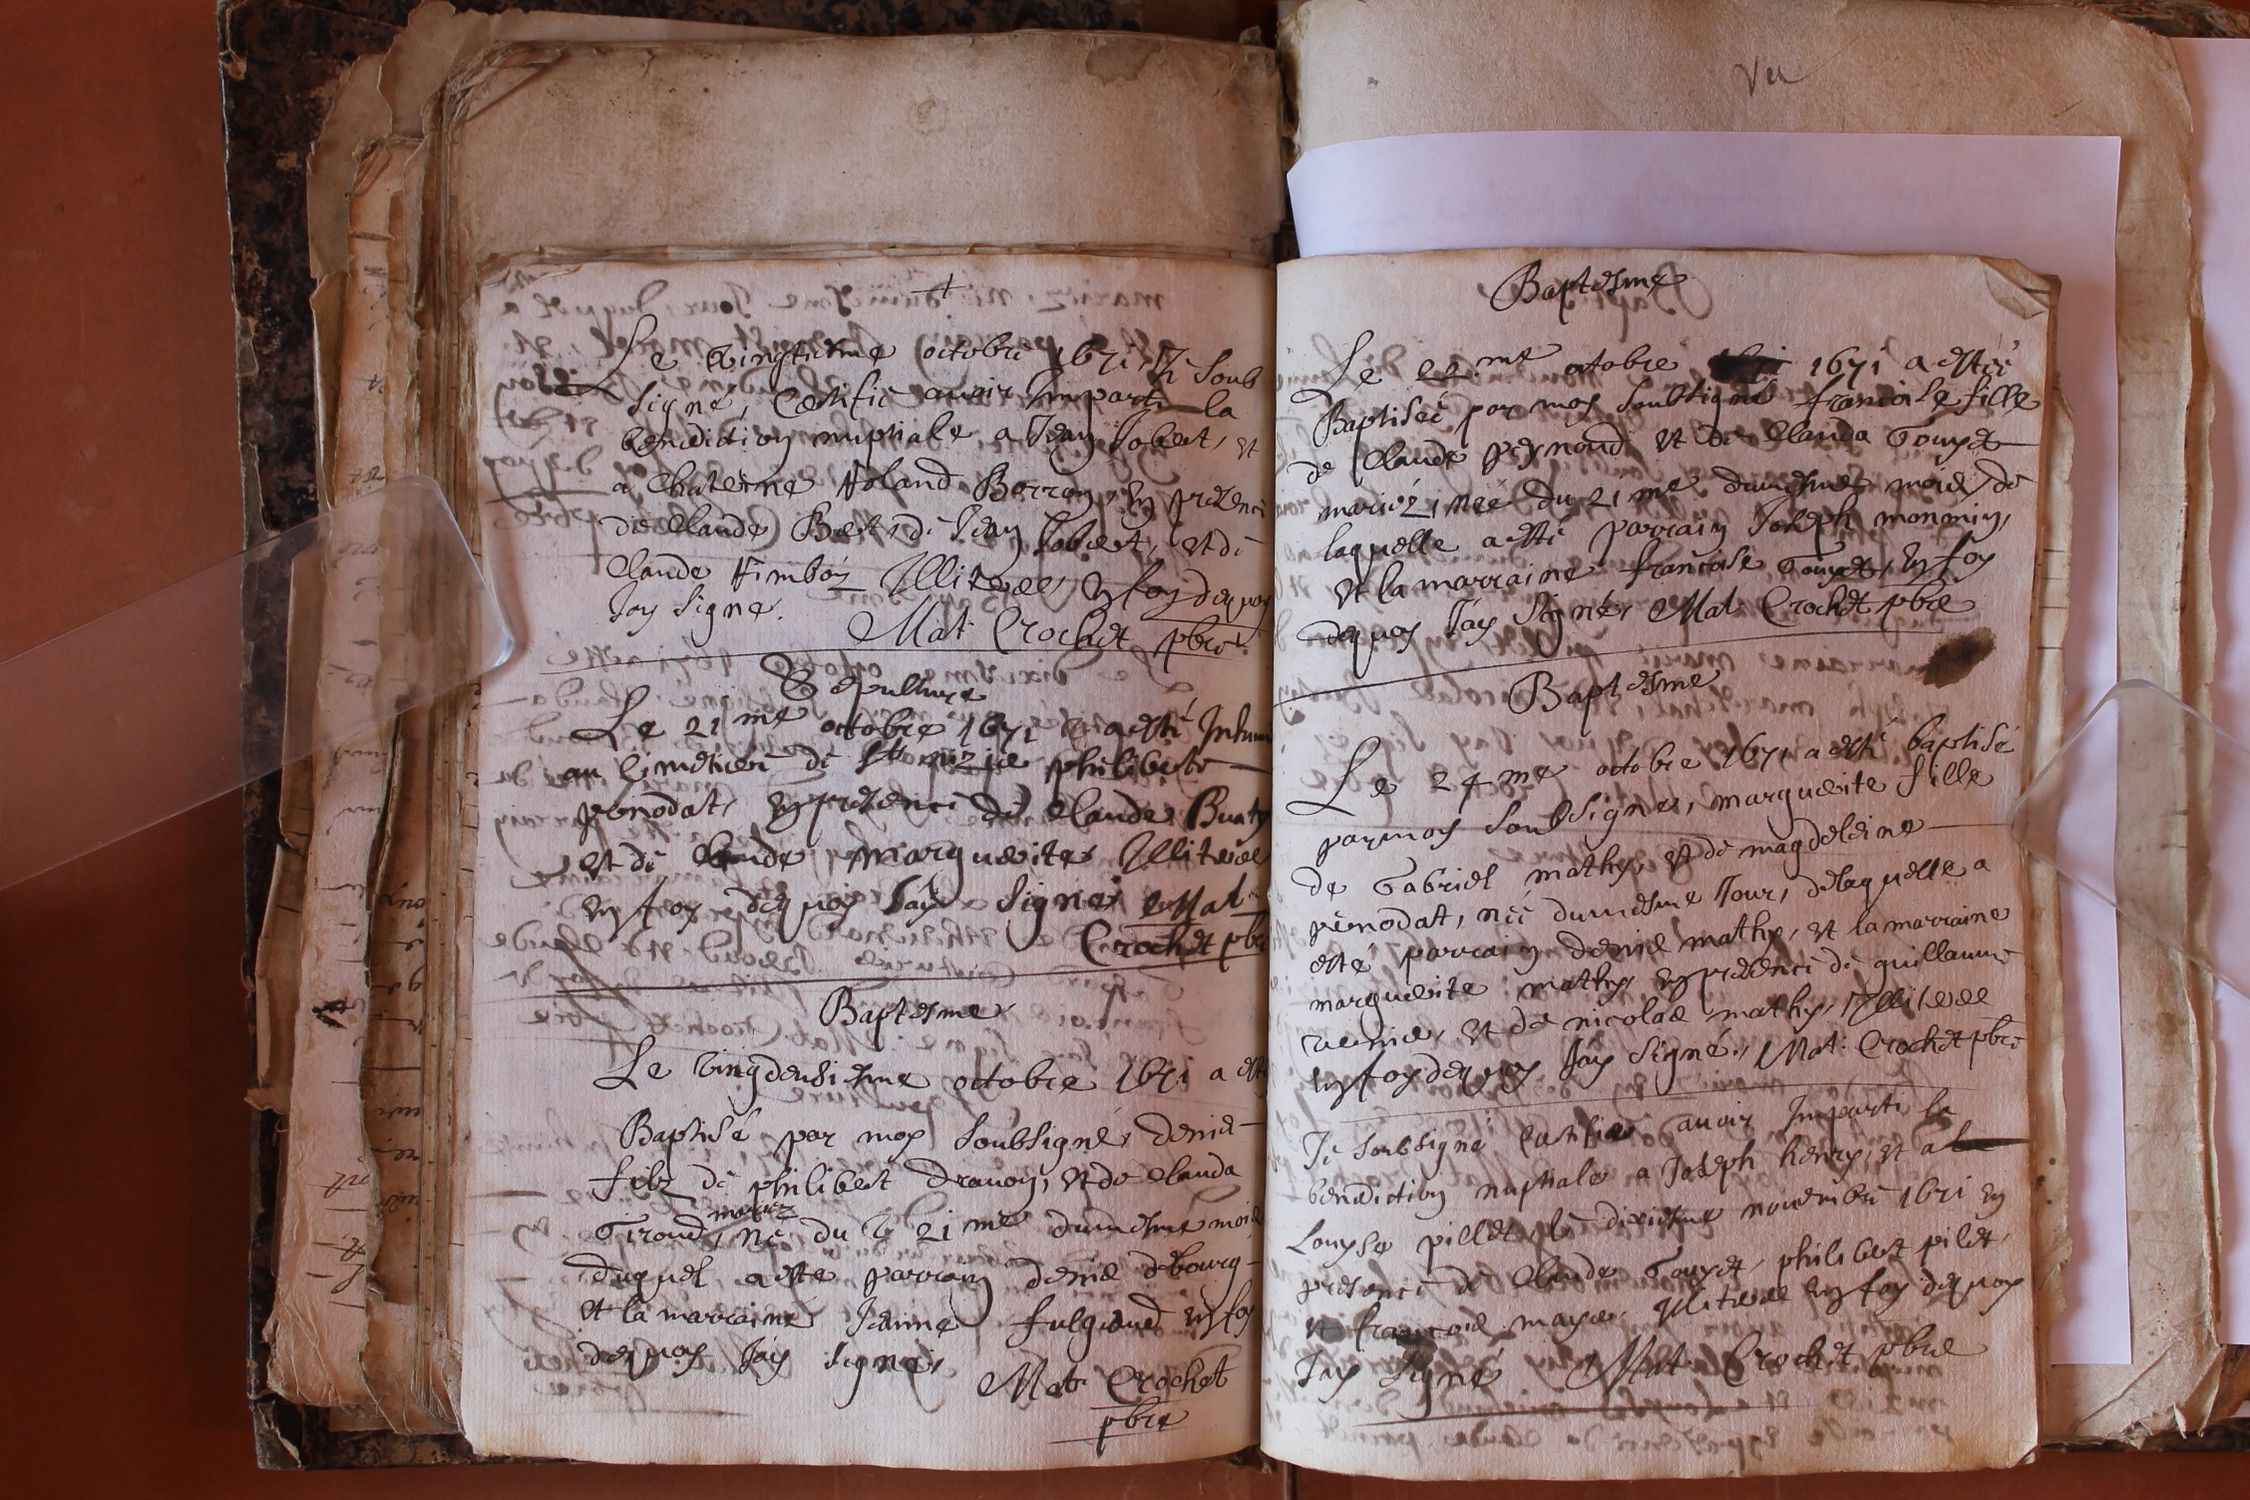 +
Le vingtiesme octobre 1671 Je soub
signé, Certifie avoir Imparti la
benediction nuptiale a Jean Jobert, et
a Chaterine Roland Berron, en presence
de Claude Bert, de Jean Jobert, et de
Claude Rimboz Illiteres, en foy dequoy
Jay signé.
Mat. Crochet pbre
Sepulture
Le 21 me octobre 1671 a esté Inhum
au Cimetiere de St nizie philiberte
penodat, en presence de Claude
et de Claude marguerite Illiteres
en foy dequoy Jay signé Mat
Crochet pbre
Baptesme
Le vingdeusiesme octobre 1671 a esté
Baptisé par moy soubsigné, denis
filz de philibert Dravoy, et de Clauda
mariez
Giroud, né du 21 me dumesme mois
duquel a esté parrain denis debourg
et la marraine Jeanne en foy
dequoy Jay signé,
Mat. Crochet
pbre
Vu
Baptesme
Le 22 me octobre 1671 a esteé
Baptiseé par moy soubsigné francoise fille
de Claude peynoud et de Clauda Gouyet
mariéz, née du 21 me dumesme mois, de
laquelle a esté parrain Joseph monmin,
et la marraine francoise Gouyet, en foy
dequoy Jay signé, Mat. Crochet pbre
Baptesme
Le 24 me octobre 1671 a esté baptisé
par moy soubsigné, marguerite fille
de Gabriel mathy, et de magdeleine
penodat, née dumesme Jour, de laquelle a
esté parrain denis mathy, et la marraine
marguerite mathy en presence de guillaume
et de nicolas mathy, Illiteres
en foy dequoy Jay signé, Mat. Crochet pbre
Je soubsigné Certifie avoir Imparti la
benediction nuptiale a Joseph henry, et a
Louyse pillet, le dixiesme novembre 1671 en
presence de Claude Gouyet, philibert pilet,
et francois mayer Illiteres en foy dequoy
Jay signé Mat. Crochet pbre